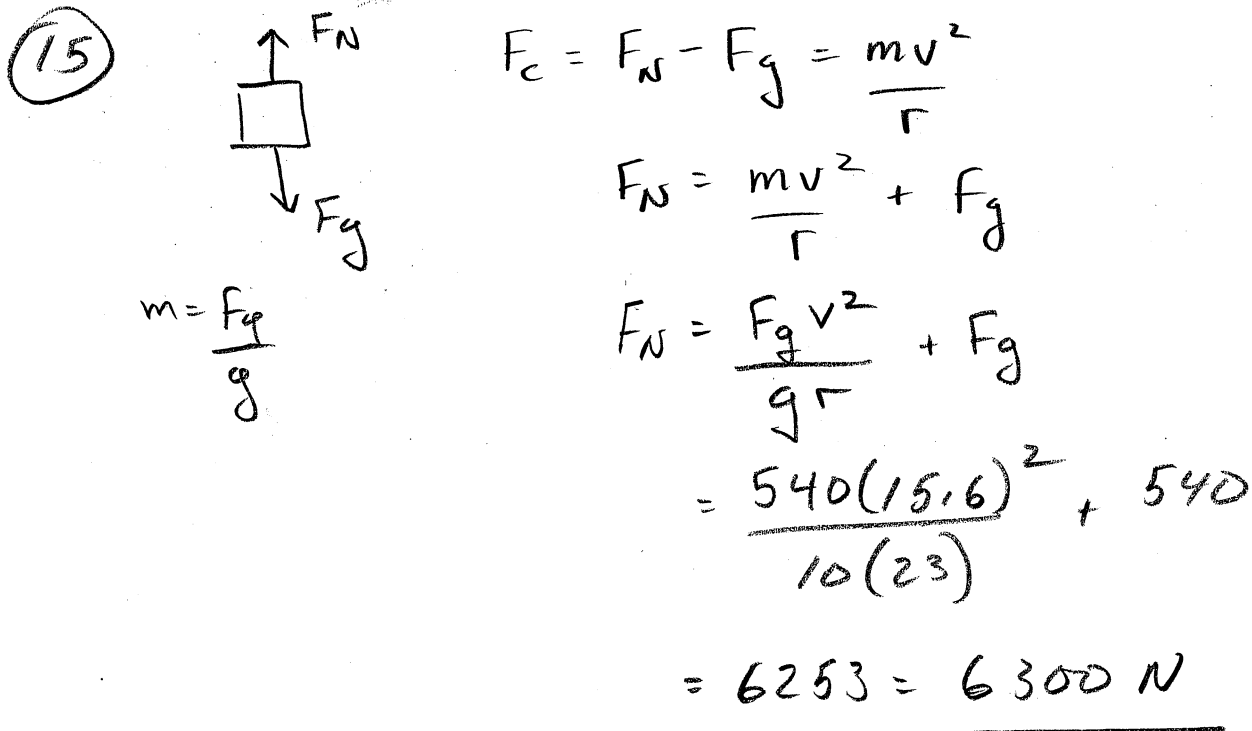 15
F_N
F_c = F_N - F_g = mv²/r
F_g
F_N = mv²/r + F_g
m = F_g/g
F_N = F_g v²/gr + F_g
= 540(15.6)²/10(23) + 540
= 6253 = 6300 N